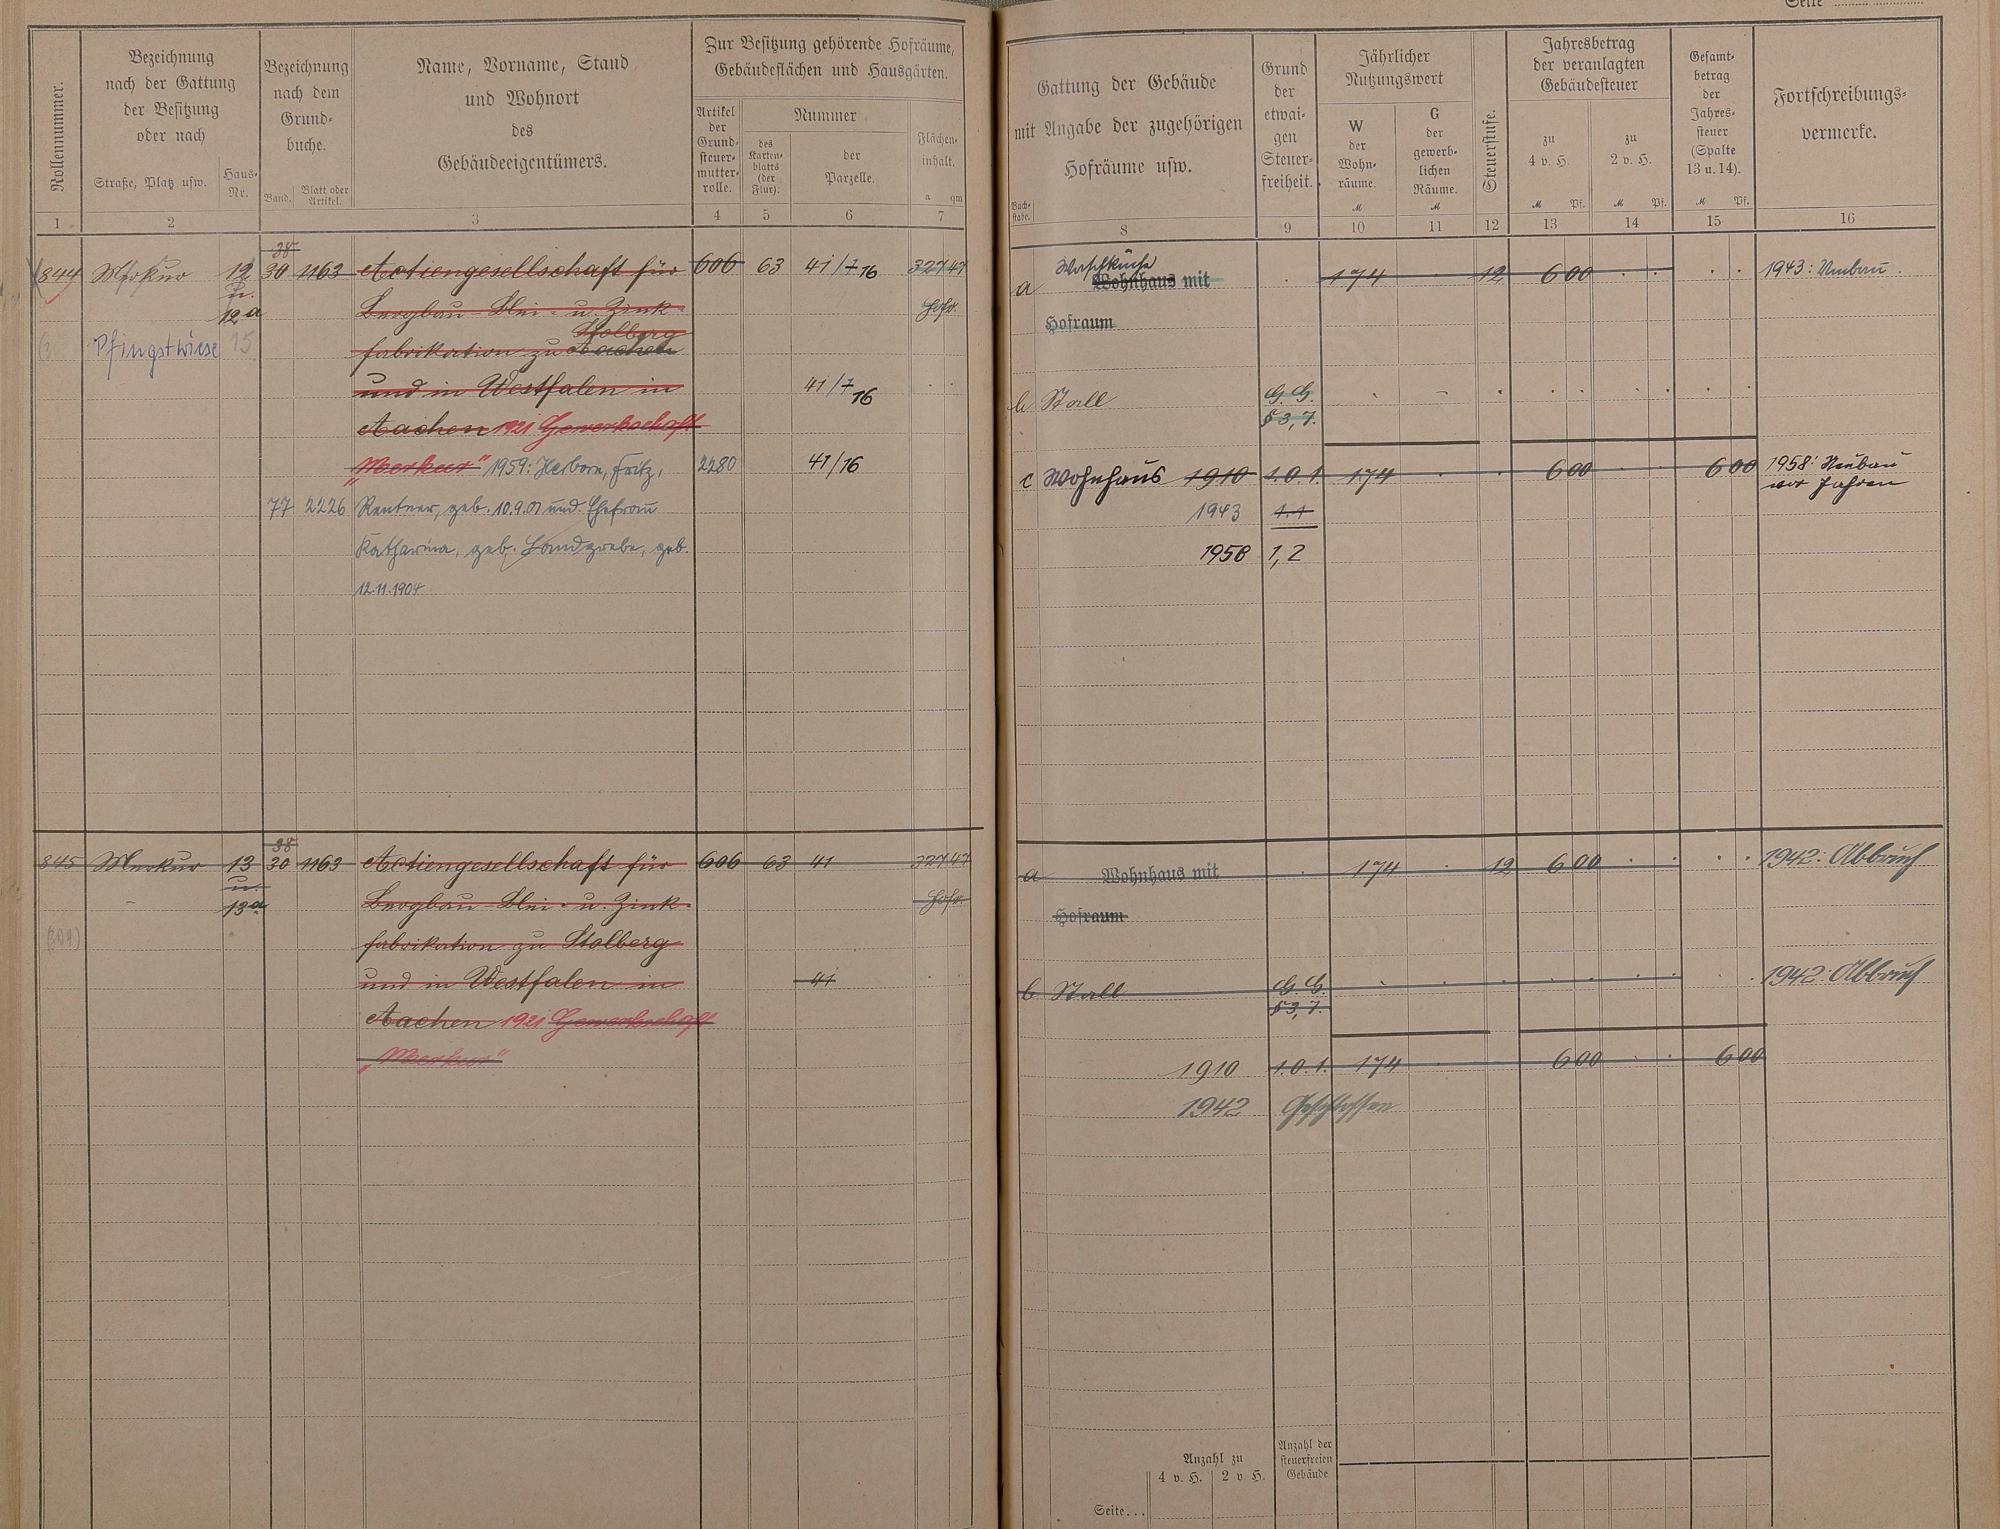 Seite
Rollennummer.
Bezeichnung
nach der Gattung
der Besitzung
oder nach
Straße, Platz usw.
Haus-
Nr.
Bezeichnung
nach dem
Grund-
buche.
Band.
Blatt oder
Artikel.
Name, Vorname, Stand
und Wohnort
des
Gebäudeeigentümers.
Zur Besitzung gehörende Hofräume,
Gebäudeflächen und Hausgärten.
Artikel
der
Grund-
steuer-
mutter-
rolle.
Nummer
des
Karten-
blatts
(der
Flur).
der
Parzelle.
Flächen-
inhalt.
a qm
1 2 3 4 5 6 7
Gattung der Gebäude
mit Angabe der zugehörigen
Hofräume usw.
Buch-
stabe.
Grund
der
etwai-
gen
Steuer-
freiheit.
Jährlicher
Nutzungswert
W
der
Wohn-
räume.
M
G
der
gewerb-
lichen
Räume.
M
Steuerstufe.
Jahresbetrag
der veranlagten
Gebäudesteuer
zu
4 v. H.
M Pf.
zu
2 v. H.
M Pf.
Gesamt-
betrag
der
Jahres-
steuer
(Spalte
13 u. 14).
M Pf.
Fortschreibungs-
vermerke.
8 9 10 11 12 13 14 15 16
38
844 Merkur 12 30 1163 Actiengesellschaft für 606 63 41/7 16 327 47
u.
12a Bergbau Blei- u. Zink- Hofr.
Stolberg
Pfingstwiese 15 fabrikation zu Aachen
und in Westfalen in 41/7 16
Aachen 1921 Gewerkschaft
"Merkur" 1959: Herborn, Fritz, 2280 41/16
77 2226 Rentner, geb. 10.9.01 und Ehefrau
Katharina, geb. Landgrebe, geb.
12.11.1904
Waschküche
a Wohnhaus mit 174 12 6 00 1943: Umbau.
Hofraum
b Stall G. G.
§ 3, 7.
c Wohnhaus 1910 1.0.1 174 6 00 6 00 1958: Neubau
vor Jahren
1943 1.1
1958 1,2
38
845 Merkur 13 30 1163 Actiengesellschaft für 606 63 41 327 47
u.
13a Bergbau Blei- u. Zink- Hofr.
(304) fabrikation zu Stolberg
und in Westfalen in 41
Aachen 1921 Gewerkschaft
"Merkur"
a Wohnhaus mit 174 12 6 00 1942: Abbruch
Hofraum
b Stall G. G. 1942: Abbruch
§ 3, 7.
1910 1.0.1. 174 6 00 6 00
1942 Geschlossen
Anzahl zu
4 v. H. 2 v. H.
Anzahl der
steuerfreien
Gebäude
Seite...